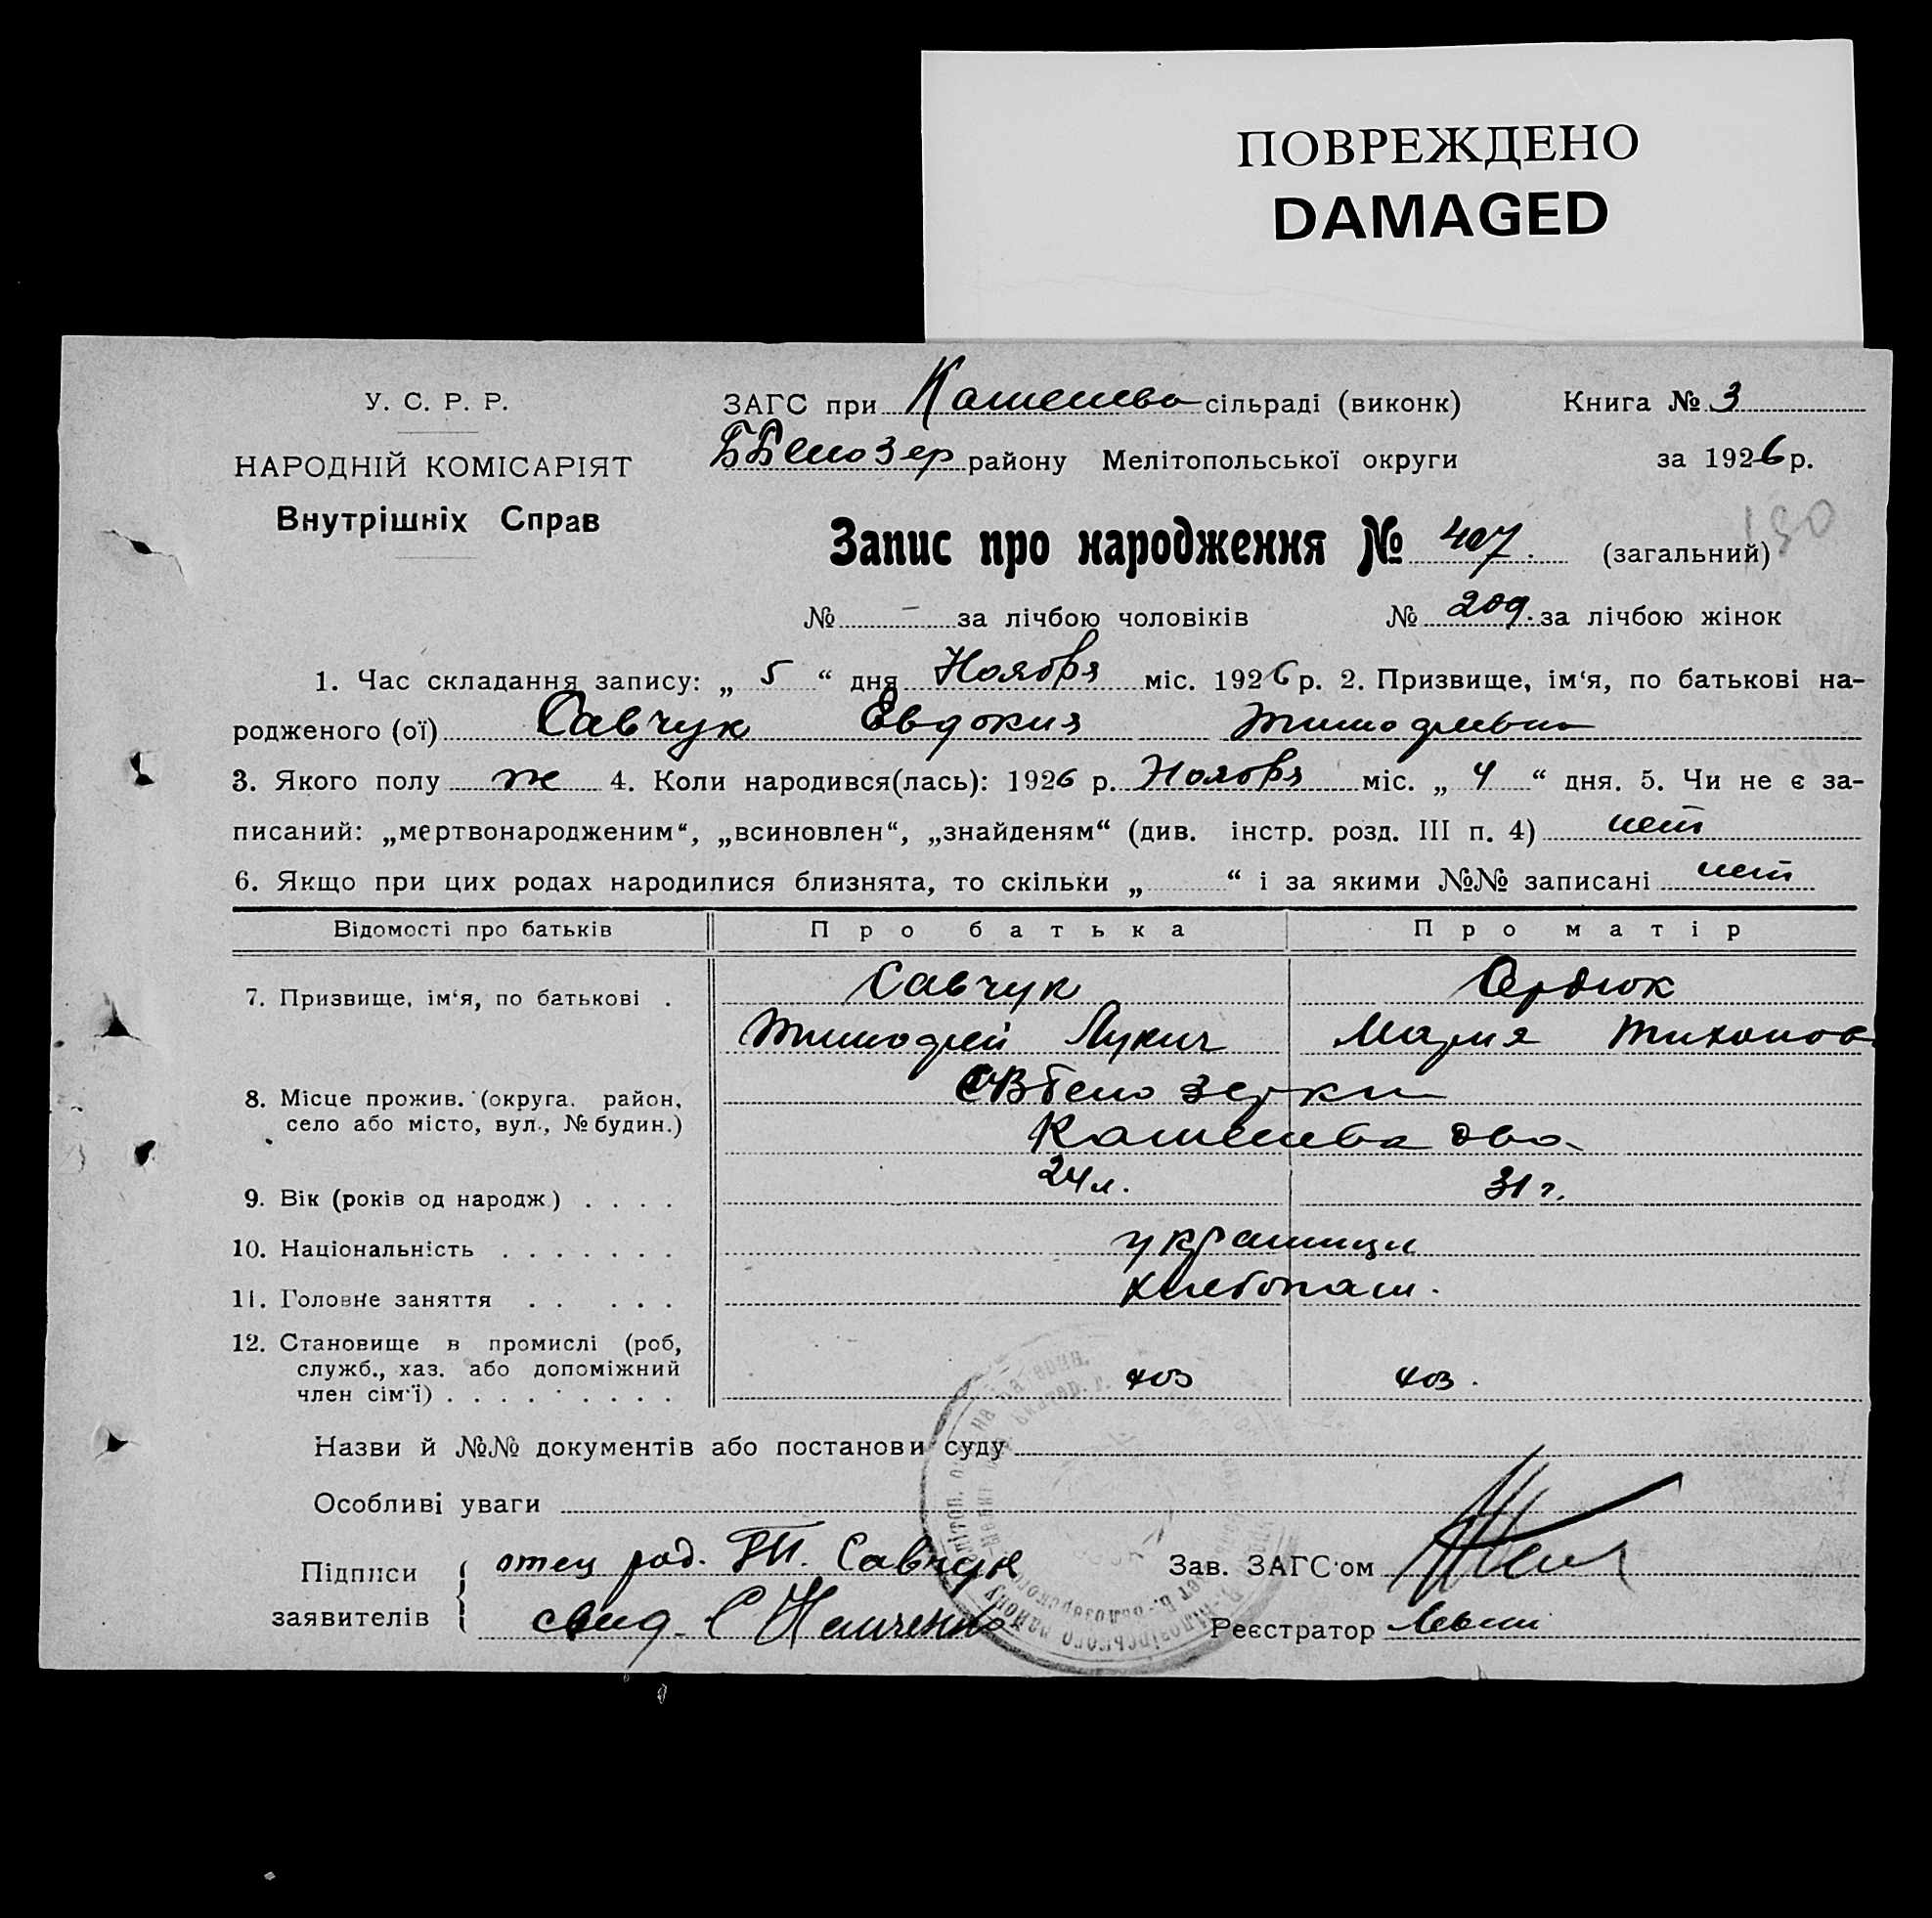 ПОВРЕЖДЕНО
DAMAGED
У. С. Р. Р.
НАРОДНІЙ КОМІСАРІЯТ
Внутрішніх Справ
ЗАГС при сільраді (виконк)
Книга № 3
району Мелітопольської округи
за 1926 р.
190
Запис про народження № 407. (загальний)
№ – за лічбою чоловіків № 209. за лічбою жінок
1. Час складання запису: „ 5 “ дня Ноября міс. 1926 р. 2. Призвище, ім‘я, по батькові на-
родженого (ої) Савчук Евдокия Тимофеевна
3. Якого полу ж 4. Коли народився(лась): 1926 р. Ноября міс. „ 4 “ дня. 5. Чи не є за-
писаний: „мертвонародженим“, „всиновлен“, „знайденям“ (див. інстр. розд. III п. 4) нет
6. Якщо при цих родах народилися близнята, то скільки „ “ і за якими №№ записані нет
Відомості про батьків Про батька Про матір
7. Призвище, ім‘я, по батькові . Савчук Сердюк
Тимофей Лукич Мария Тихонов
8. Місце прожив. (округа. район,
село або місто, вул., № будин.)
9. Вік (років од народж) . . . . 24 л. 31 г.
10. Національність . . . . . . . украинцы
11. Головне заняття . . . . . хлебопаш.
12. Становище в промислі (роб,
служб., хаз. або допоміжний
член сім‘ї) . . . . . . . . хоз хоз.
Назви й №№ документів або постанови суду
Особливі уваги
Підписи
заявителів
отец род. Савчук
свид.
Зав. ЗАГС‘ом
Реєстратор